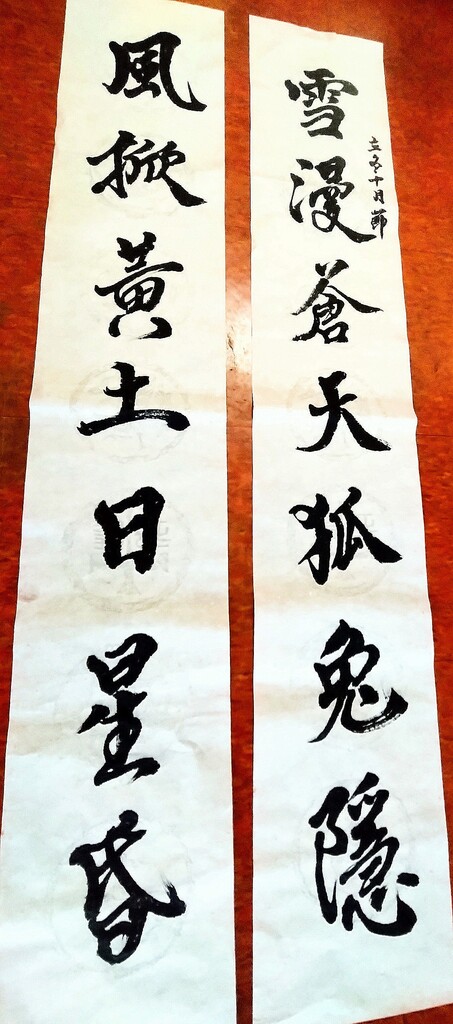 雪漫蒼天狐兔隱
立冬十月節
風掀黃土日星昏